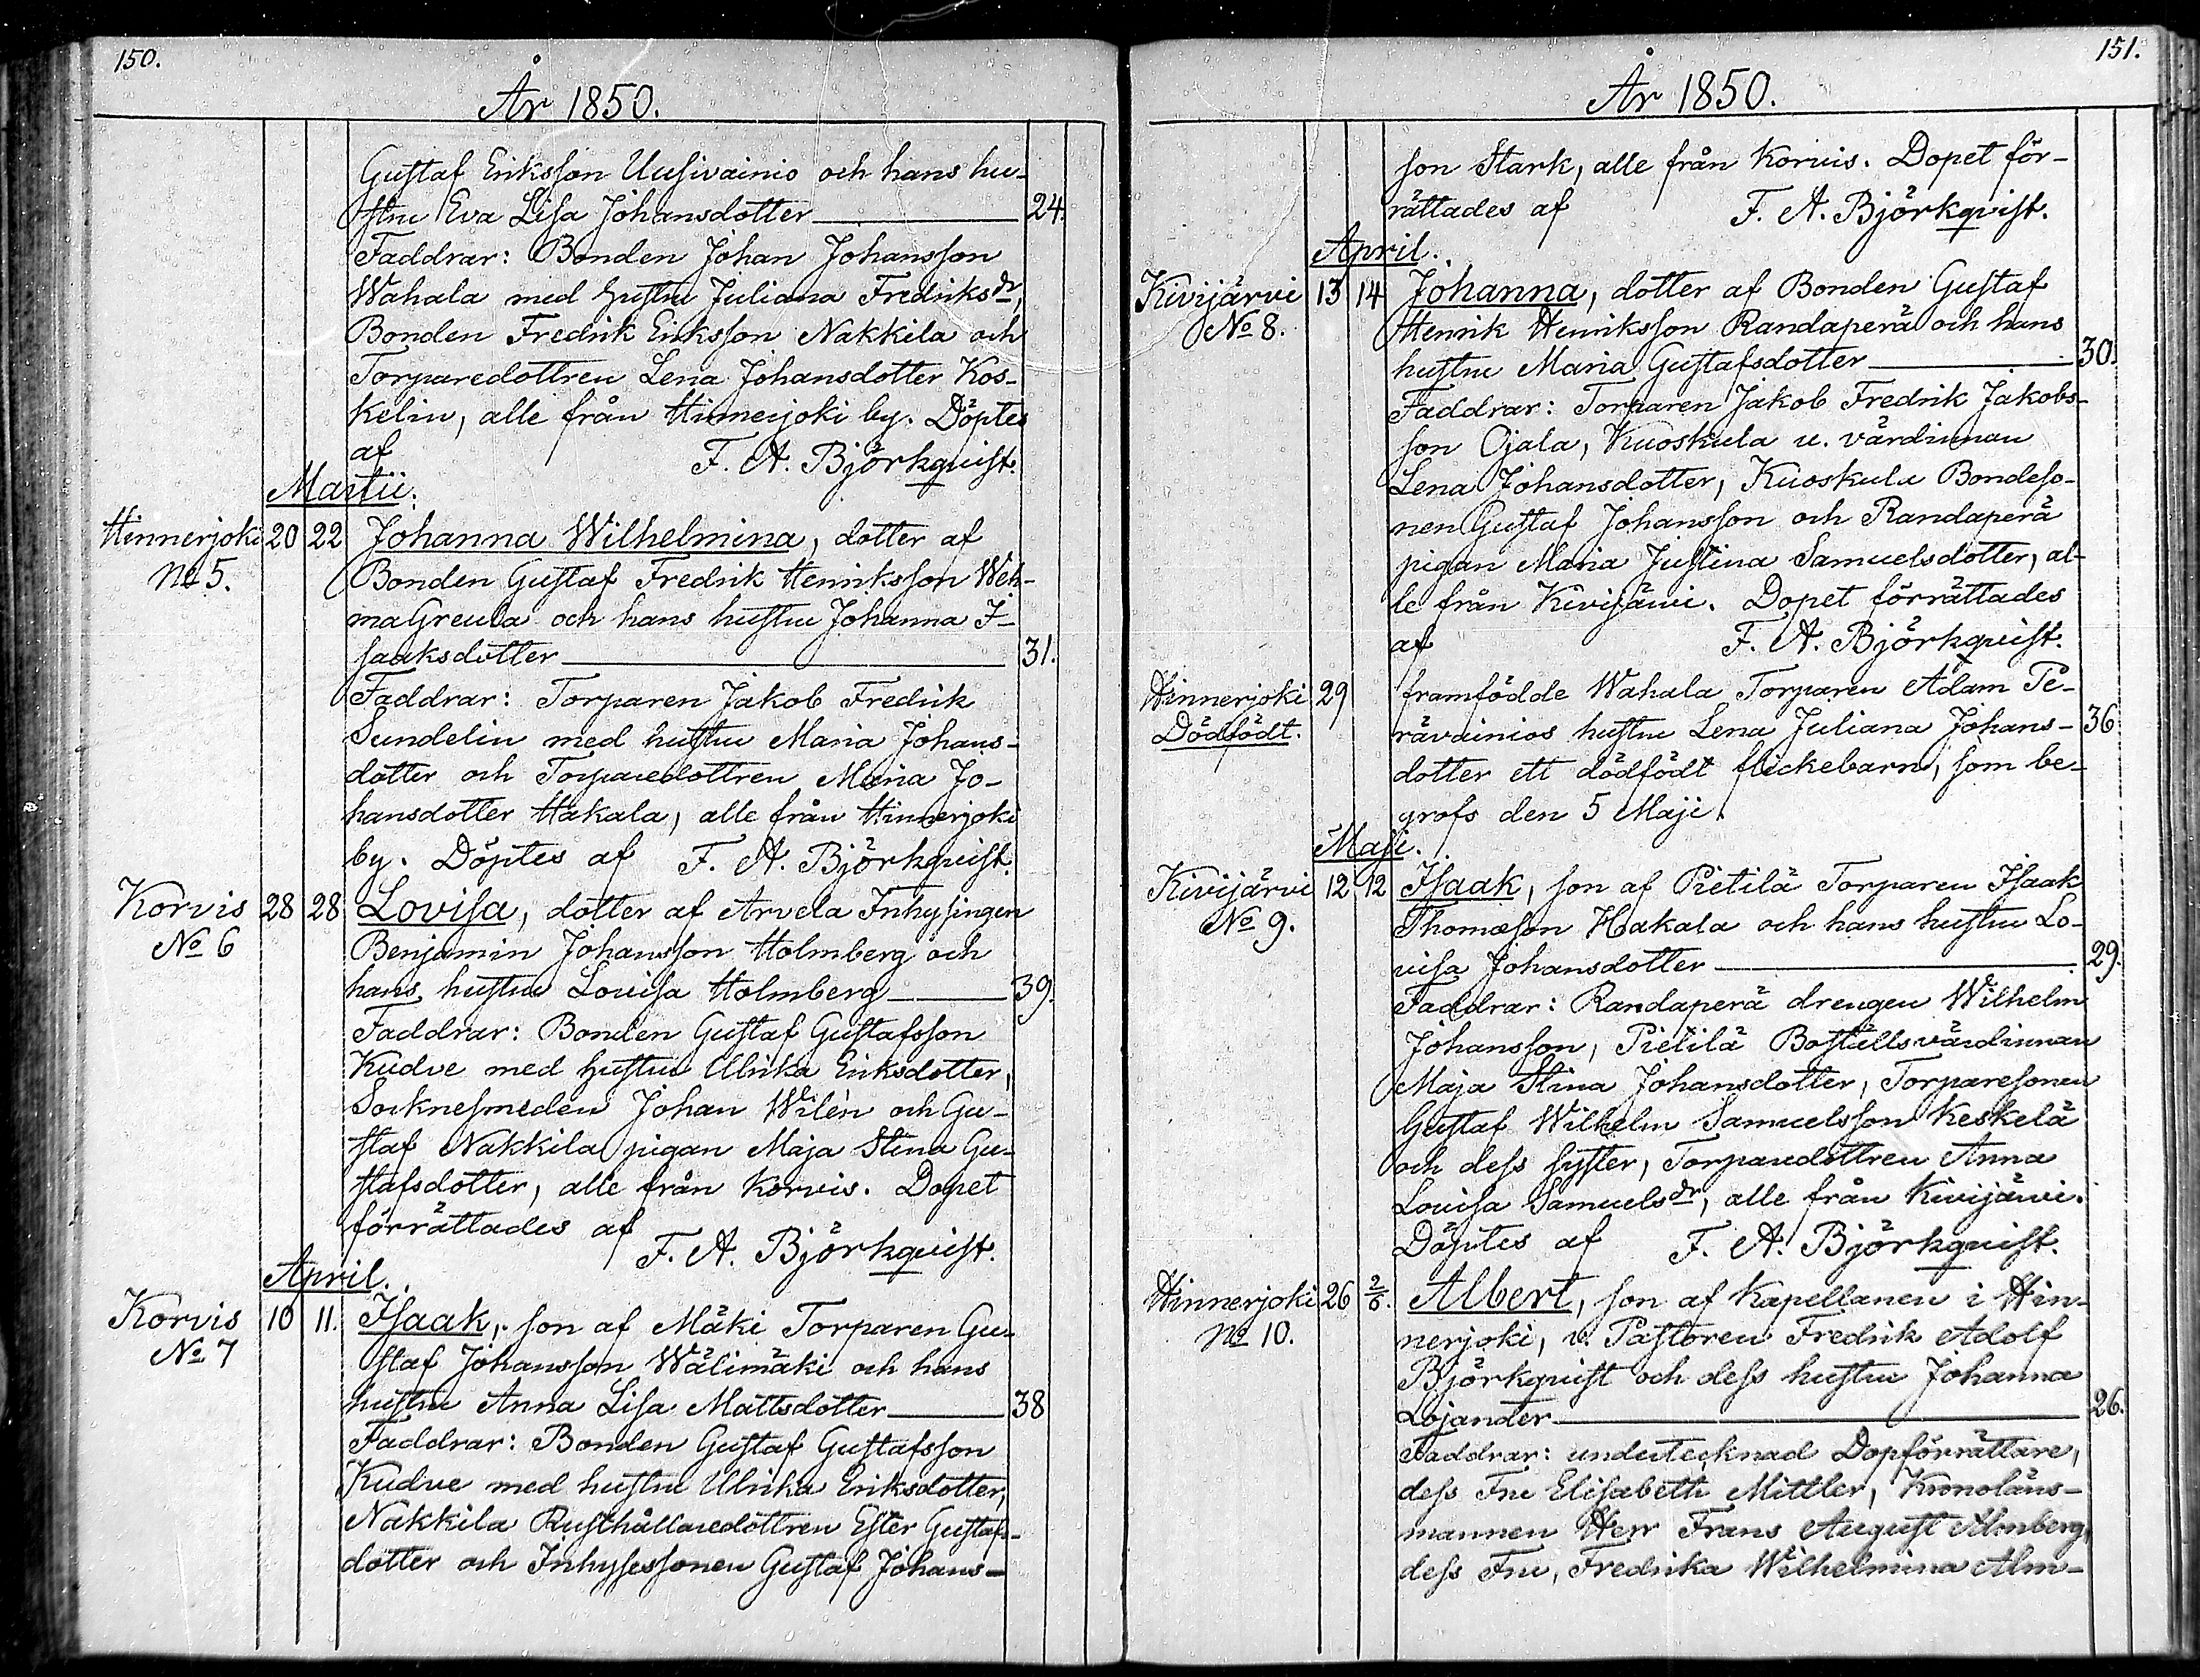 150.
År 1850.
Gustaf Eriksson Uusivainio och hans hu-
stru Eva Lisa Johansdotter 24.
Faddrar: Bonden Johan Johansson
Wahala med hustru Juliana Fredriksdr,
Bonden Fredrik Eriksson Nakkila och
Torparedottren Lena Johansdotter Kos-
kelin, alle från Hinnerjoki by. Döptes
af F. A. Björkqvist.
Martii.
Hinnerjoki 20 22 Johanna Wilhelmina, dotter af
No 5. Bonden Gustaf Fredrik Henriksson Weh-
maGreula och hans hustru Johanna I-
saaksdotter 31.
Faddrar: Torparen Jakob Fredrik
Sundelin med hustru Maria Johans-
dotter och Torparedottren Maria Jo-
hansdotter Hakala, alle från Hinnerjoki
by. Döptes af F. A. Björkqvist.
Korvis 28 28 Lovisa, dotter af Arvela Inhysingen
No 6 Benjamin Johansson Holmberg och
hans hustru Lovisa Holmberg 39.
Faddrar: Bonden Gustaf Gustafsson
Kudve med hustru Ulrika Eriksdotter,
Socknesmeden Johan Wilén och Gu-
staf Nakkila pigan Maja Stina Gu-
stafsdotter, alle från Korvis. Dopet
förrättades af F. A. Björkqvist.
April.
Korvis 10 11. Isaak, son af Mäki Torparen Gu-
No 7 staf Johansson Wälimäki och hans
hustru Anna Lisa Mattsdotter 38
Faddrar: Bonden Gustaf Gustafsson
Kudve med hustru Ulrika Eriksdotter,
Nakkila Rusthållaredottren Ester Gustafs-
dotter och Inhysessonen Gustaf Johans-
151.
År 1850.
son Stark, alle från Korvis. Dopet för-
rättades af F. A. Björkqvist.
April.
Kivijärvi 13 14 Johanna, dotter af Bonden Gustaf
No 8. Henrik Henriksson Randaperä och hans
hustru Maria Gustafsdotter 30.
Faddrar: Torparen Jakob Fredrik Jakobs-
son Ojala, Kuoskula u. värdinnan
Lena Johansdotter, Kuoskula Bondeso-
nen Gustaf Johansson och Randaperä
pigan Maria Justina Samuelsdotter, al-
le från Kivijärvi. Dopet förrättades
af F. A. Björkqvist.
Hinnerjoki 29 framfödde Wahala Torparen Adam Pe-
Dödfödt. rävainios hustru Lena Juliana Johans- 36
dotter ett dödfödt flickebarn, som be-
grofs den 5 Maji.
Maji.
Kivijärvi 12 12 Isaak, son af Pietilä Torparen Isaak
No 9. Thomasson Hakala och hans hustru Lo-
visa Johansdotter 29.
Faddrar: Randaperä drengen Wilhelm
Johansson, Pietilä Boställsvärdinnan
Maja Stina Johansdotter, Torparesonen
Gustaf Wilhelm Samuelsson Keskelä
och dess syster, Torparedottren Anna
Lovisa Samuelsdr, alle från Kivijärvi.
Döptes af F. A. Björkqvist.
Hinnerjoki 26 2/6. Albert, son af Kapellanen i Hin-
No 10. nerjoki, v. Pastoren Fredrik Adolf
Björkqvist och dess hustru Johanna
Lojander 26.
Faddrar: undertecknad Dopförrättare,
dess Fru Elisabeth Mittler, Kronoläns-
mannen Herr Frans August Almberg,
dess Fru, Fredrika Wilhelmina Alm-